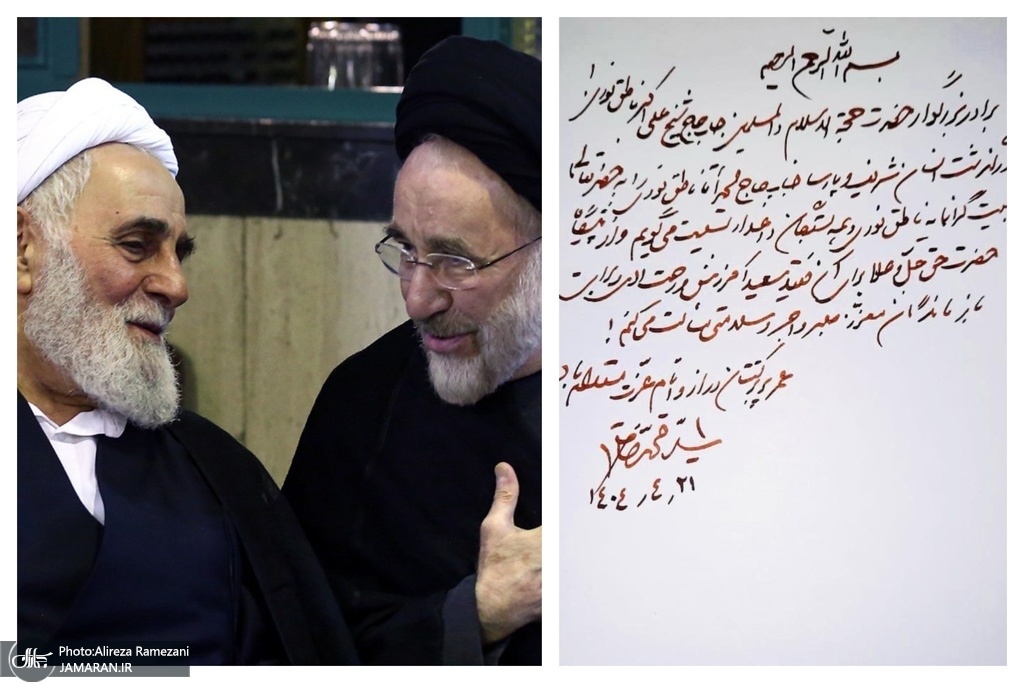 بسم الله الرحمن الرحیم
برادر بزرگوار حضرت حجة الاسلام والمسلمین جناب حاج شیخ علی اکبر ناطق نوری
درگذشت انسان شریف و پارسا جناب حاج احمد آقا ناطق نوری را به حضرتعالی
بیت گرانمایه ناطق نوری و همه بستگان داغدار تسلیت می گویم و از پیشگاه
حضرت حق جل و علا برای آن فقید سعید آمرزش و رحمت الهی و برای
بازماندگان معزز صبر و اجر و سلامتی مسالت می کنم!
عمر پربرکتتان دراز و ایام عزت مستدام باد
سید محمد خاتمی
۱۴۰۴٫۴٫۲۱
Photo:Alireza Ramezani
JAMARAN.IR